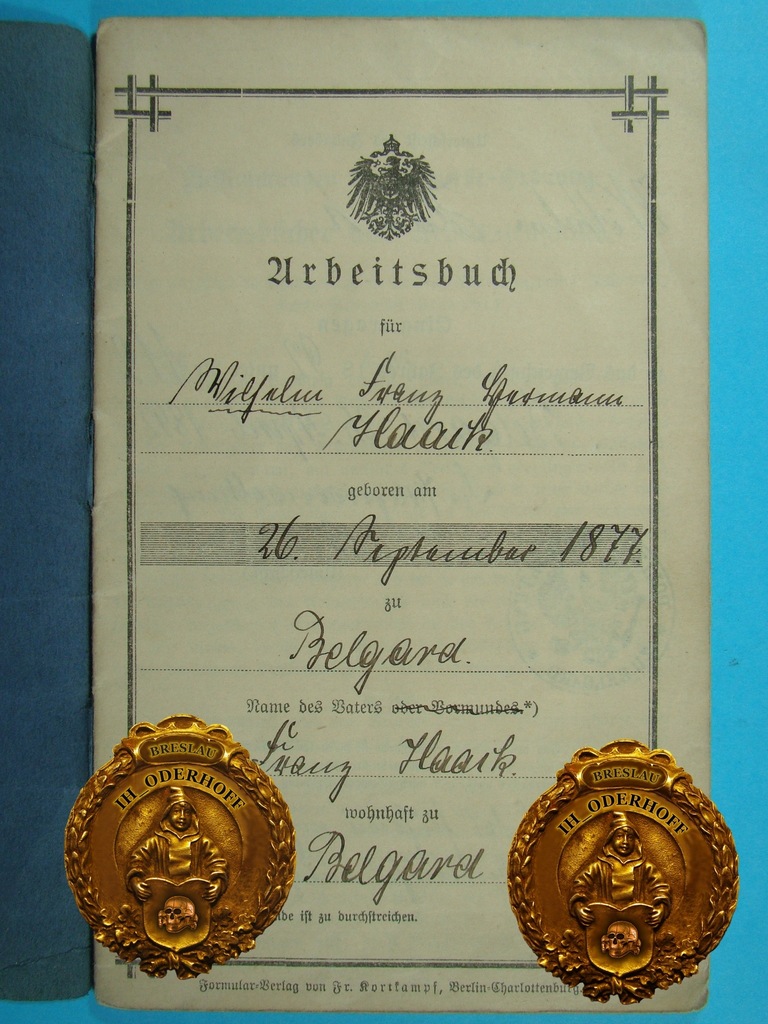 Arbeitsbuch
für
Wilhelm Franz Hermann
Haack.
geboren am
26. September 1877.
zu
Belgard.
Name des Vaters oder Vormundes.*)
Franz Haack.
wohnhaft zu
Belgard
ist zu durchstreichen.
Formular-Verlag von Fr. Kortkampf, Berlin-Charlottenburg.
BRESLAU
IH_ODERHOFF
BRESLAU
IH_ODERHOFF